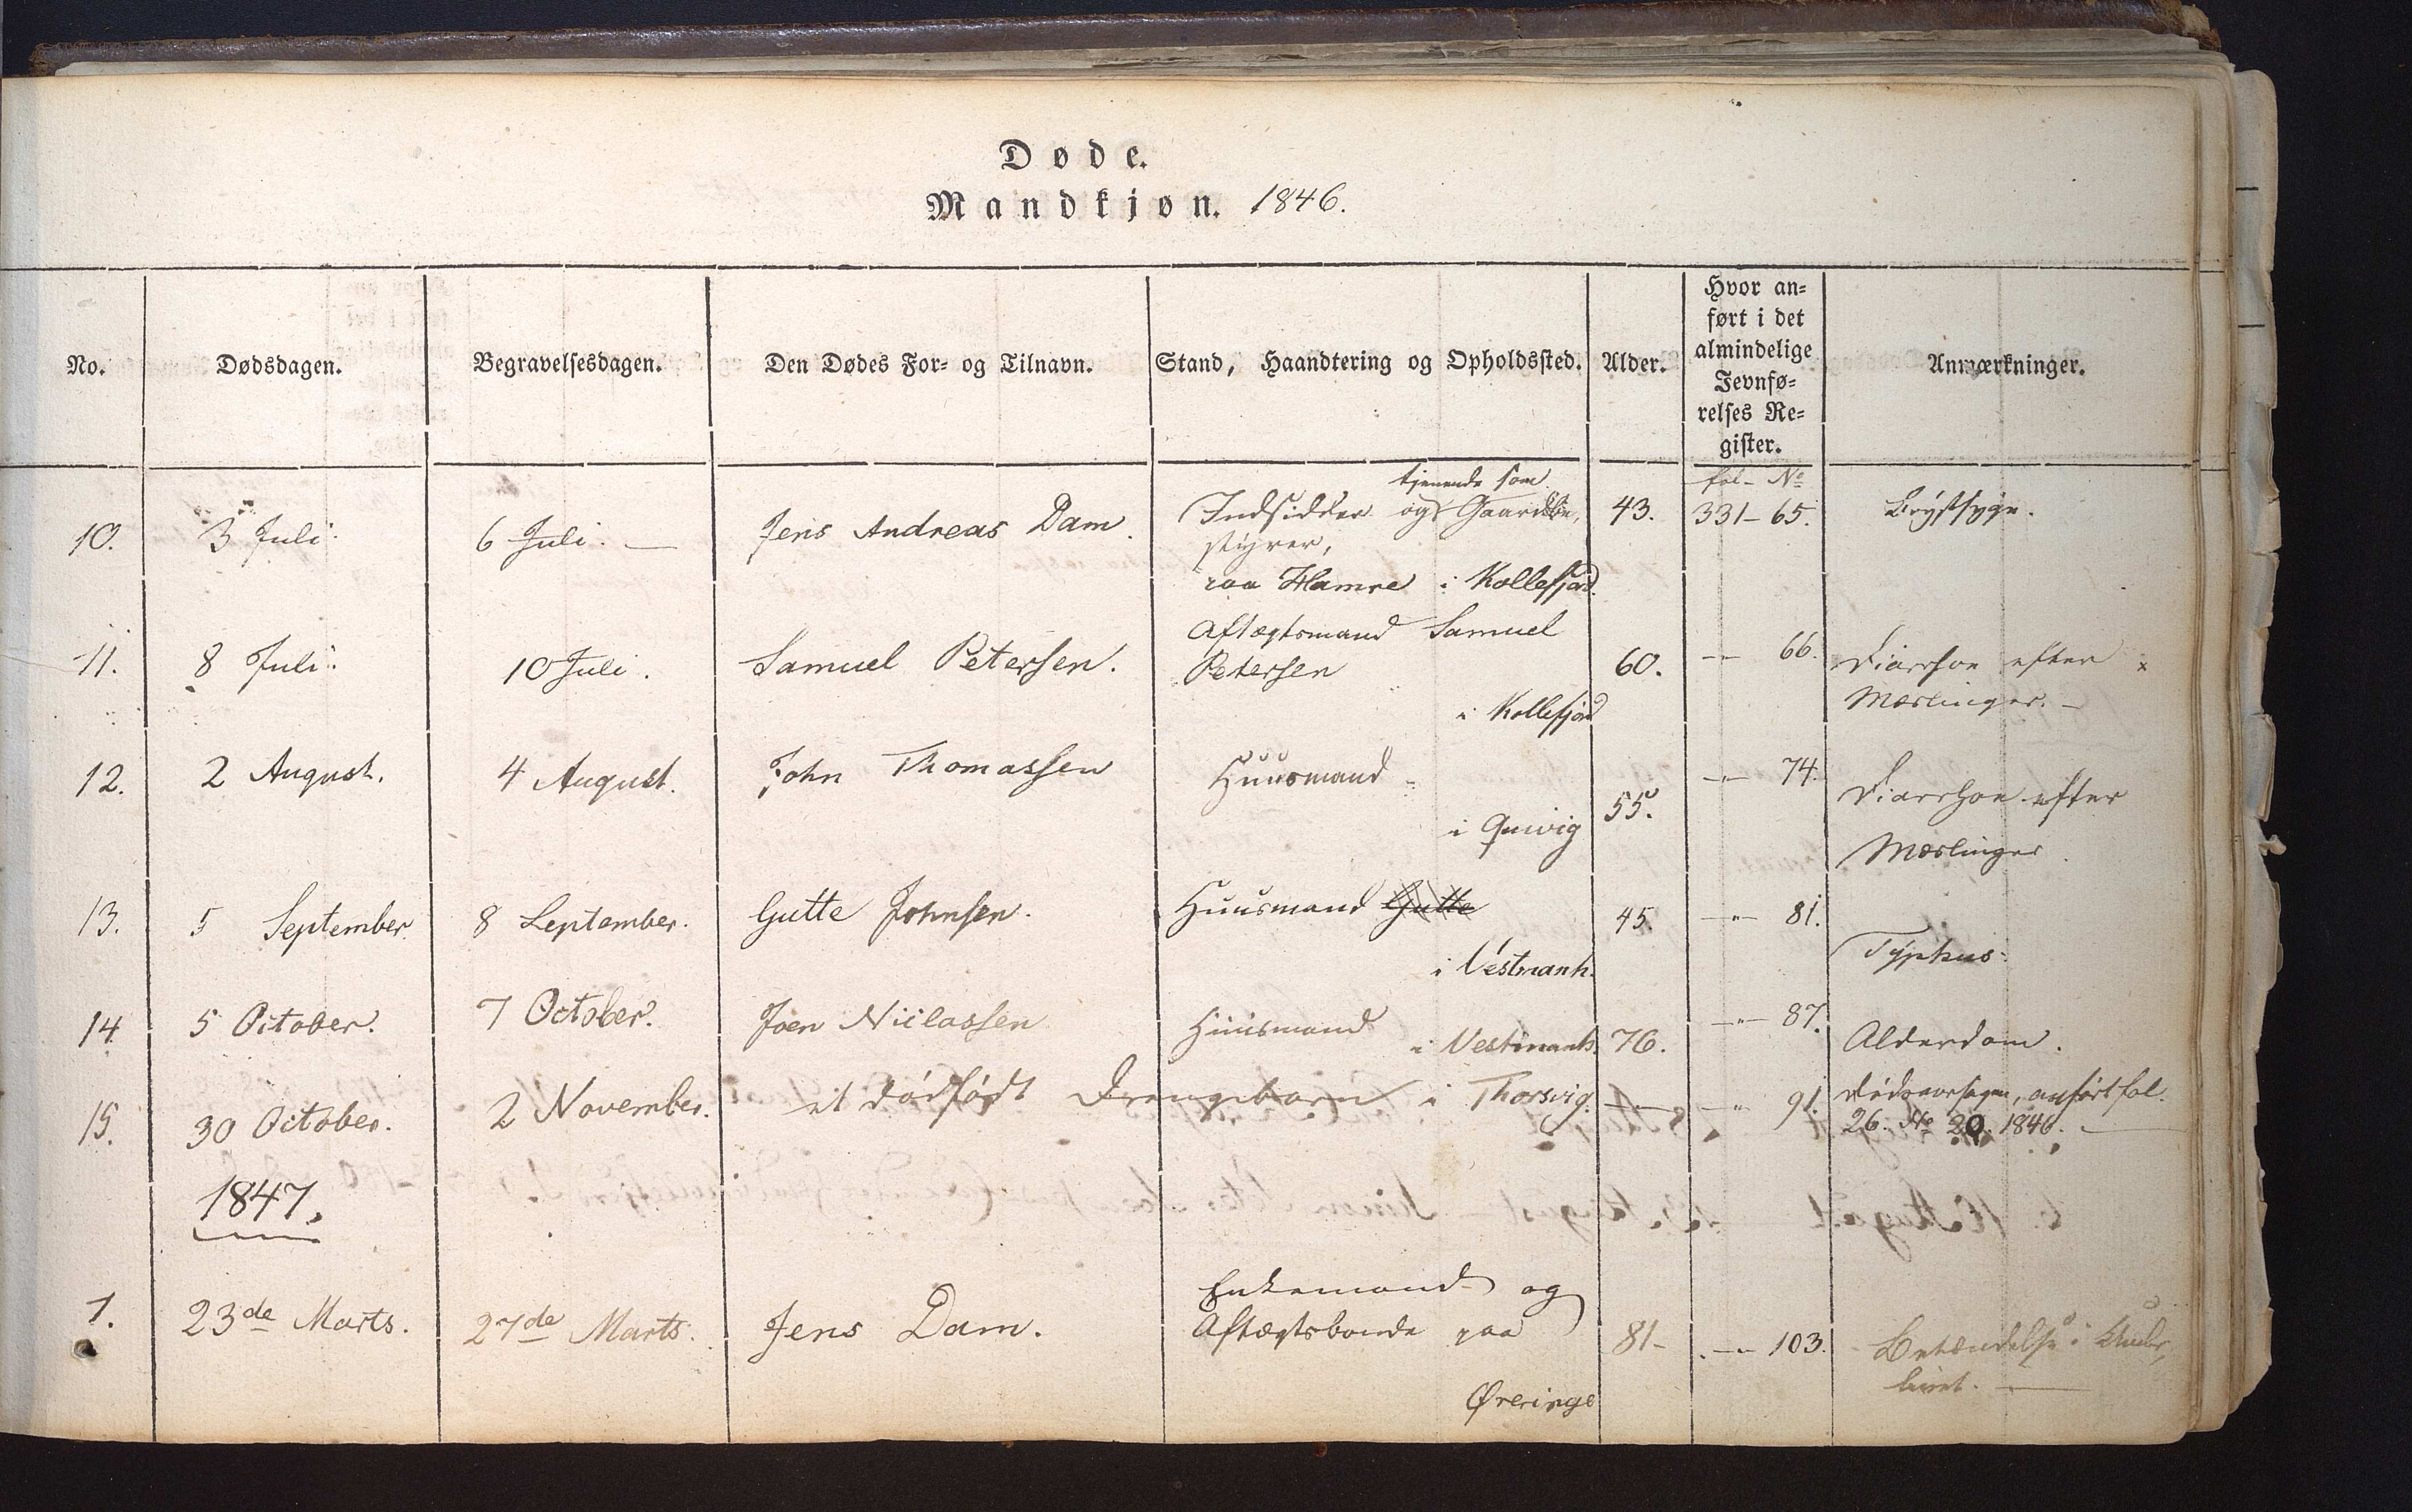 Døde.
Mandkjøn. 1846.
No.
Dødsdagen.
Begravelsesdagen.
Den Dødes For- og Tilnavn.
Stand, Haandtering og Opholdssted.
Alder.
Hvor an-
ført i det
almindelige
Jevnfø-
relses Re-
gister.
Anmærkninger.
fol- No
10. 3 Juli. 6 Juli. — Jens Andreas Dam.
tjenende som
Indsidder og Gaardbe,
styrer,
paa Hamre i Kollefjord.
43. 331-65. Brystsyge.
11. 8 Juli. 10 Juli. Samuel Petersen.
Aftægtsmand Samuel
Petersen
i Kollefjord
60. —"— 66. Diarrhoe efter
Mæslinger. —
12. 2 August. 4 August. John Thomassen
Huusmand
i Qvivig
55. —"— 74. Diarrhoe efter
Mæslinger.
13. 5 September 8 September. Gutte Johnsen.
Huusmand Gutte
i Vestmanh.
45. —"— 81. Typhus.
14. 5 October. 7 October. Joen Niclassen
Huusmand
i Vestmanh.
76. —"— 87. Alderdom.
15. 30 October. 2 November. et dødfødt Drengebarn i Thorsvig. —"— —"— 91.
anført fol.
26. No 20. 1846. —
1847.
1. 23de Marts. 27de Marts. Jens Dam.
Enkemand og
Aftægtsbonde paa
Øreringe
81- —"— 103. Betændelse i Under,
livet. —